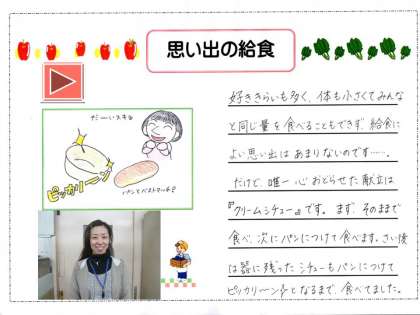 思い出の給食
だーいスキ♡
ピッカリーン
パンとベストマッチ!!
好ききらいも多く、体も小さくてみんな
と同じ量を食べることもできず、給食に
よい思い出はあまりないのです……。
だけど、唯一心おどらせた献立は
『クリームシチュー』です。まず、そのままで
食べ、次にパンにつけて食べます。さい後
は器に残ったシチューもパンにつけて
ピッカリーン☆となるまで、食べてました。